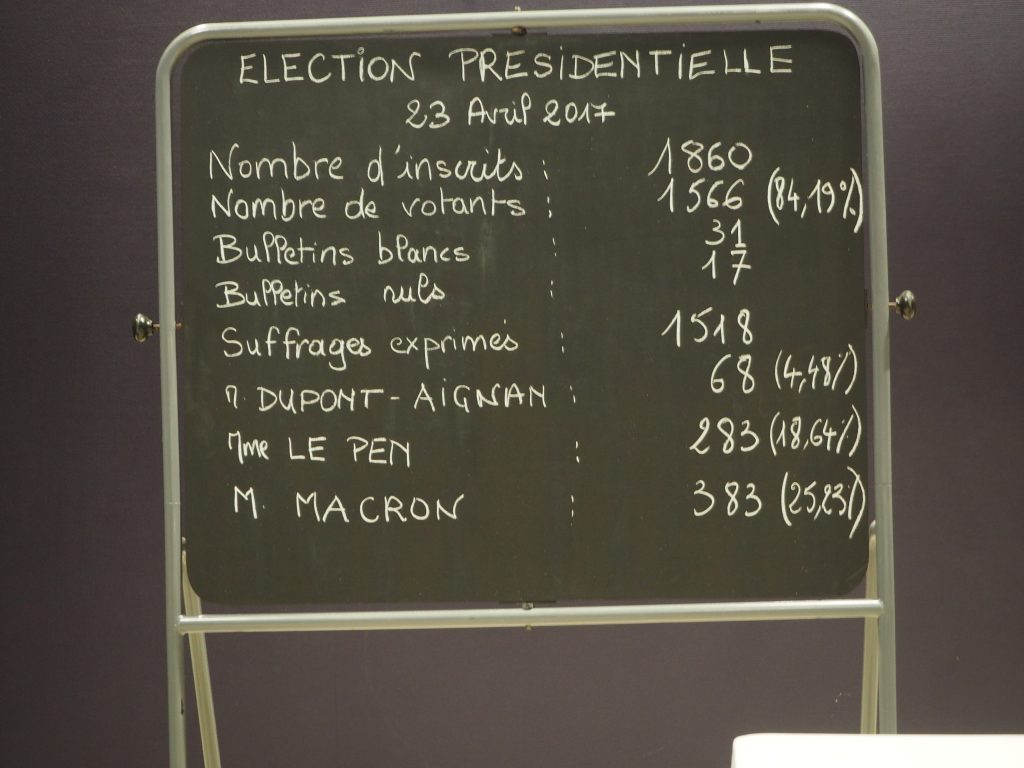 ELECTION PRESIDENTIELLE
23 Avril 2017
Nombre d'inscrits : 1860
Nombre de votants : 1566 (84,19%)
Bulletins blancs : 31
Bulletins nuls : 17
Suffrages exprimés : 1518
M. DUPONT-AIGNAN : 68 (4,48%)
Mme LE PEN : 283 (18,64%)
M. MACRON : 383 (25,23%)